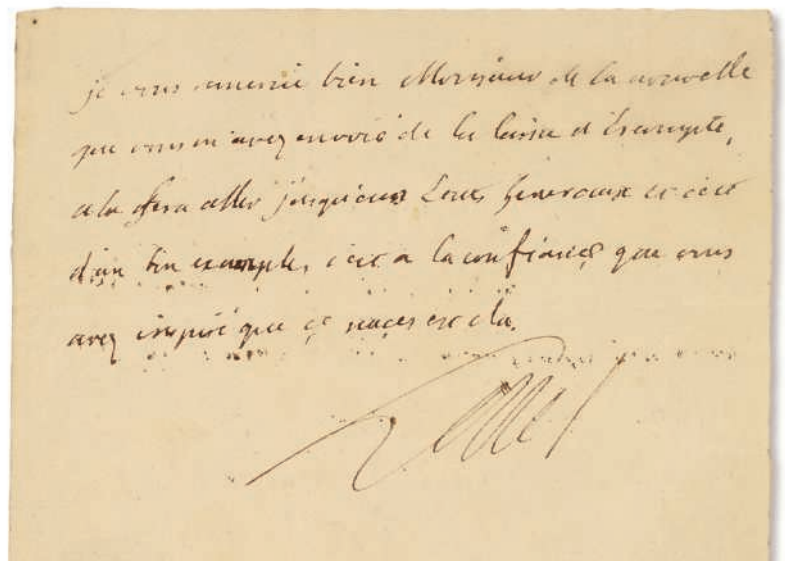 je vous remercie bien Monsieur de la nouvelle
que vous m'avez envoié de la Caisse d'Escompte,
cela fera aller jusqu'aux Etats Generaux et c'est
d'un bon exemple, c'est a la confiance que vous
avez inspiré que ce succes est du.
Louis